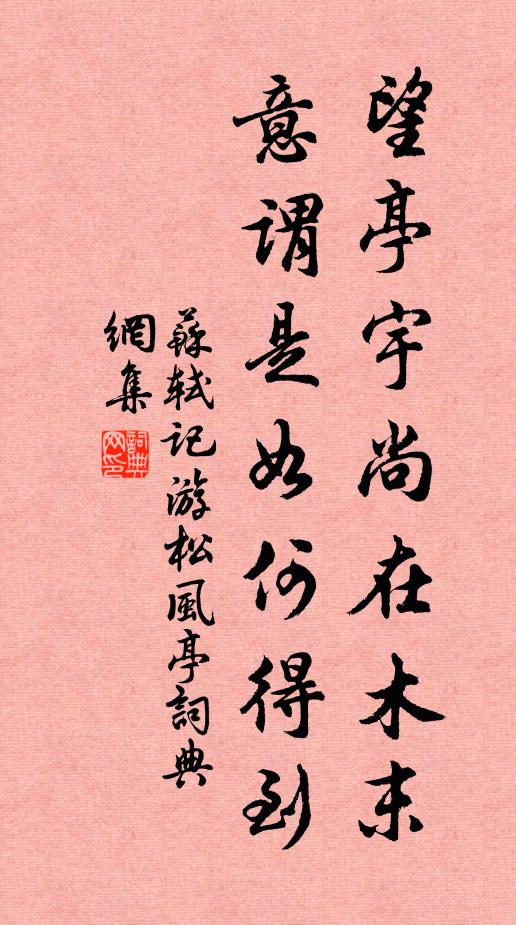 望亭宇尚在木末
意謂是如何得到
蘇軾記游松風亭詞典
網集
詞典
网印